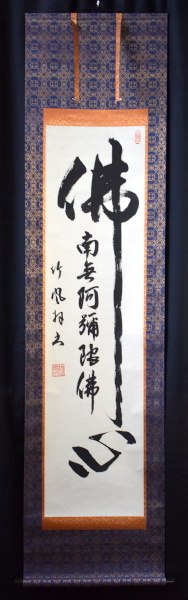 佛心
南無阿彌陀佛
竹風拝書